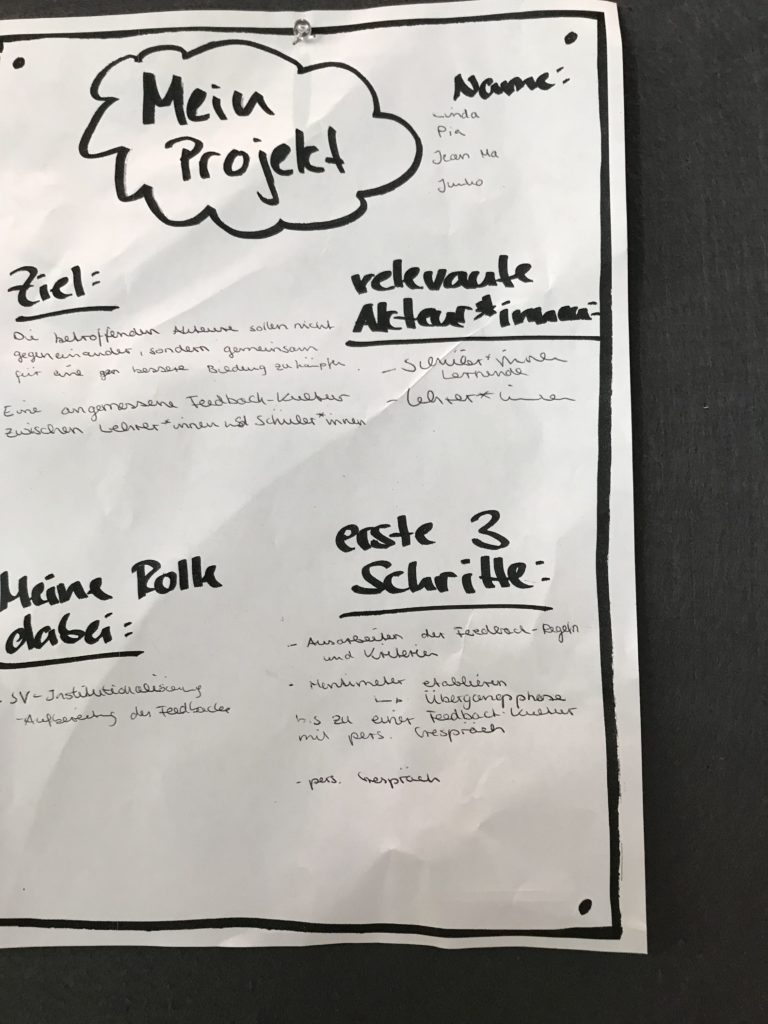 Mein
Projekt
Name:
Linda
Pia
Jean Ma
Junho
Ziel:
Die betroffenden Akteure sollen nicht
gegeneinander, sondern gemeinsam
für eine bessere Bildung zu kämpfen.
Eine angemessene Feedback-Kultur
zwischen Lehrer*innen und Schüler*innen
relevante
Akteur*innen:
- Schüler*innen
Lernende
- Lehrer*innen
Meine Rolle
dabei:
- SV-Institutionalisierung
- Aufbereitung der Feedbacks
erste 3
Schritte:
- Ausarbeiten der Feedback-Regeln
und Kriterien
- Mentimeter etablieren
↳ Übergangsphase
bis zu einer Feedback-Kultur
mit pers. Gespräch
- pers. Gespräch